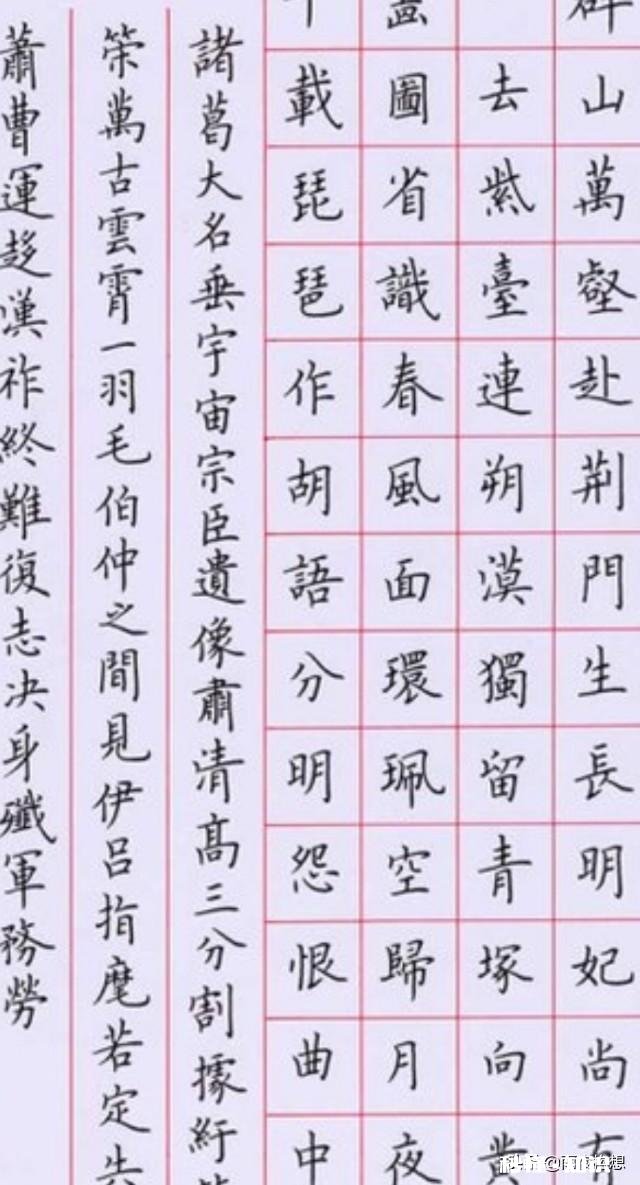 群山萬壑赴荆門生長明妃尚有
去紫臺連朔漠獨留青塚向黄
畫圖省識春風面環珮空歸月夜
千載琵琶作胡語分明怨恨曲中
諸葛大名垂宇宙宗臣遺像肅清髙三分割據紆
策萬古雲霄一羽毛伯仲之間見伊呂指麾若定失
蕭曹運移漢祚終難復志决身殲軍務勞